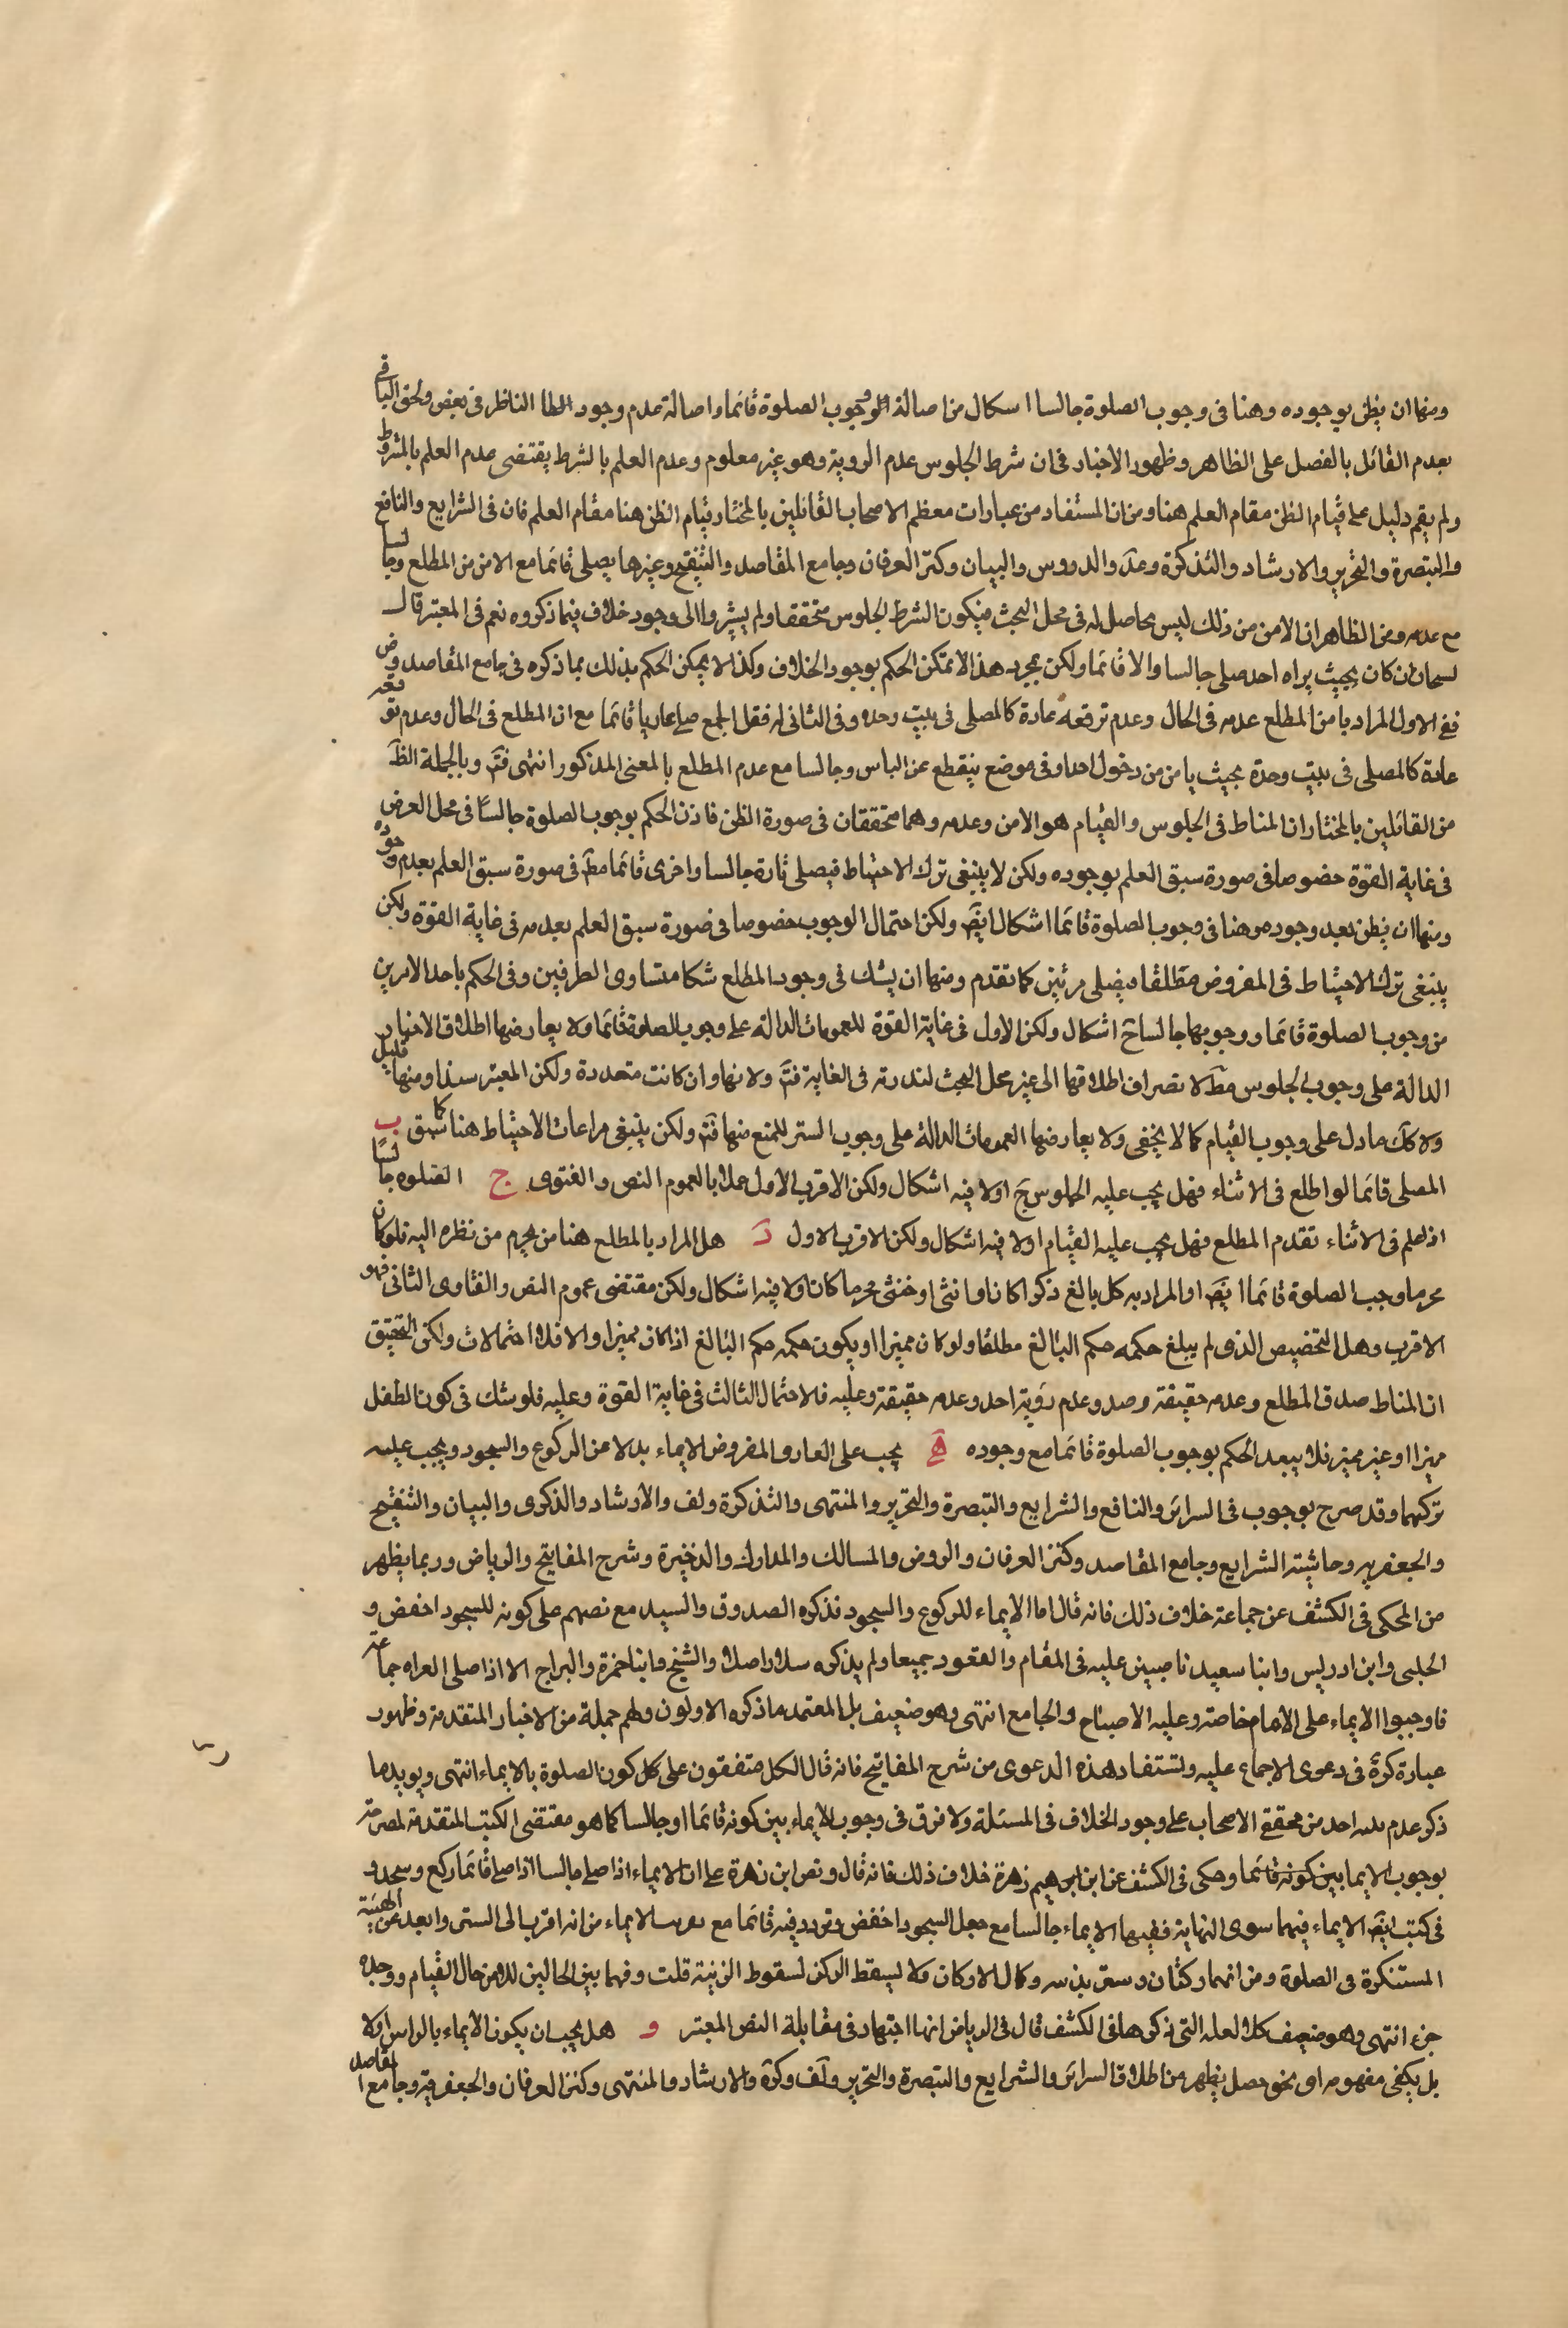 ومنها ان يظن بوجوده وهنا فى وجوب الصلوة جالسا اسكال من اصالة الوجوب الصلوة قائما واصالة عدم وجود الناظر فى بعض ولحق الباقى
بعدم القائل بالفصل على الظاهر وظهور الاخبار فى ان شرط الجلوس عدم الروية وهو غير معلوم وعدم العلم بالشرط يقتضى عدم العلم بالمشروط
ولم يقم دليل على قيام الظن مقام العلم هنا ومن ان المستفاد من عبارات معظم الاصحاب القائلين بالمختار قيام الظن هنا مقام العلم فان فى الشرايع والنافع
والتبصرة والتحرير والارشاد والتذكرة وعد والدروس والبيان وكنز العرفان وجامع المقاصد والتنقيح وغيرها يصلى قائما مع الامن من المطلع وجالسا
مع عدمه ومن الظاهر ان الامن من ذلك ليس بحاصل له فى محل البحث فيكون الشرط الجلوس متحققا ولم يشيروا الى وجود خلاف فيما ذكروه نعم فى المعتبر قال
ان كان بحيث يراه احد صلى جالسا والا قائما ولكن بمجرد هذا لا يمكن الحكم بوجود الخلاف وكذا لا يمكن الحكم بذلك بما ذكره فى جامع المقاصد وض
ففى الاول المراد بامن المطلع عدمه فى الحال وعدم توقعه عادة كالمصلى فى بيت وحده وفى الثانى له فقل الجمع صلى عاريا قائما مع ان المطلع فى الحال وعدم توقعه
عادة كالمصلى فى بيت وحده بحيث يامن من دخول احد او فى موضع ينقطع عن الناس وجالسا مع عدم المطلع بالمعنى المذكور انتهى فتم وبالجملة الظ
من القائلين بالمختار ان المناط فى الجلوس والقيام هو الامن وعدمه وهما متحققان فى صورة الظن فاذن الحكم بوجوب الصلوة جالسًا فى محل العرض
فى غاية القوة خصوصا فى صورة سبق العلم بوجوده ولكن لا ينبغى ترك الاحتياط فيصلى تارة جالسا واخرى قائما مط فى صورة سبق العلم بعدم وجوده
ومنها ان يظن بعد وجوده وهنا فى وجوب الصلوة قائما اشكال ايض ولكن احتمال الوجوب خصوصا فى صورة سبق العلم بعدمه فى غاية القوة ولكن
ينبغى ترك الاحتياط فى المفروض مطلقا فيصلى مرتين كما تقدم ومنها ان يشك فى وجود المطلع شكا متساوى الطرفين وفى الحكم باحد الامرين
من وجوب الصلوة قائما ووجوبها جالسا ح اشكال ولكن الاول فى غاية القوة للعمومات الدالة على وجوب الصلوة قائما ولا يعارضها اطلاق الاخبار
الدالة على وجوب الجلوس مط لا نصراف اطلاقها الى غير محل البحث لندرته فى الغاية فتم ولانها وان كانت متعددة ولكن المعتبر سندا ومنها قليل
ولا كك ما دل على وجوب القيام كما لا يخفى ولا يعارضها العمومات الدالة على وجوب الستر للمنع منها فتم ولكن ينبغى مراعات الاحتياط هنا كما سبق ب
المصلى قائما لو اطلع فى الاثناء فهل يجب عليه الجلوس ح اولا فيه اشكال ولكن الاقرب الاول عملا بالعموم النص والفتوى ج الصلوه جالسًا
اذ اعلم فى الاثناء تقدم المطلع فهل يجب عليه القيام اولا فيه اشكال ولكن الاقرب الاول د هل المراد بالمطلع هنا من يحرم من نظره اليه فلو كان
محرما وجب الصلوة قائما ايض او المراد به كل بالغ ذكرا كان او انثى او خنثى محرما كان اولا فيه اشكال ولكن مقتضى عموم النص والفتاوى الثانى فهو
الاقرب وهل التخصيص الذى لم يبلغ حكمه حكم البالغ مطلقا ولو كان مميزا او يكون حكمه حكم البالغ اذا كان مميزا والا فلا احتمالات ولكن التحقيق
ان المناط صدق المطلع وعدمه حقيقة وصد وعدم رؤية احد وعدمه حقيقة وعليه فالاحتمال الثالث فى غاية القوة وعليه فلو شك فى كون الطفل
مميزا او غير مميز فلا يبعد الحكم بوجوب الصلوة قائما مع وجوده ه يجب على العار والمفروض الايماء بدلا من الركوع والسجود ويجب عليه
تركهما وقد صرح بوجوب فى السرائر والنافع والشرايع والتبصرة والتحرير والمنتهى والتذكرة ولف والارشاد والذكرى والبيان والتنقيح
والجعفريه وحاشيته الشرايع وجامع المقاصد وكنز العرفان والروض والمسالك والمدارك والذخيرة وشرح المفاتيح والرياض وربما يظهر
من المحكى فى الكشف عن جماعة خلاف ذلك فانه قال اما الايماء للركوع والسجود فذكره الصدوق والسيد مع نصهم على كونه للسجود اخفض و
الحلبى وابن ادريس وابنا سعيد ناصبين عليه فى المقام والقعود جميعا ولم يذكره سلار اصلا والشيخ وابنا حمزة والبراج الا اذا صلى العراه جماعة
فاوجبوا الايماء على الامام خاصة وعليه الاصباح والجامع انتهى وهو ضعيف بل المعتمد ما ذكره الاولون ولهم جملة من الاخبار المتقدمة وظهور
عبارة كرة فى دعوى الاجماع عليه وتستفاد هذه الدعوى من شرح المفاتيح فانه قال الكل متفقون على كل كون الصلوة بالايماء انتهى ويويدها
ذكر عدم احد من محققى الاصحاب على وجود الخلاف فى المسئلة ولا فرق فى وجوب الايماء بين كونه قائما او جالسا كما هو مقتضى الكتب المتقدمة لمصرحة
بوجوب الايما بين كونه قائما وحكى فى الكشف عن ابن زهرة خلاف ذلك فانه قال ونص ابن زهرة على ان الايماء اذا صلى جالسا اذا صلى قائما ركع وسجد و
فى كتب ايض الايماء فيهما سوى النهاية ففيها الايماء جالسا مع جعل السجود اخفض وتردد فيه قائما مع الايماء من انه اقرب الى الستر وابعد عن الهيئة
المستنكرة فى الصلوة ومن انهما ركنان وكمال الاركان ولا يسقط الركن لسقوط الزنية قلت وفيهما بين الحالين للامن حال القيام ووجد
جزء انتهى وهو ضعيف كلا العله التى ذكرها فى الكشف قال فى الرياض انها اجتهاد فى مقابلة النص المعتبر و هل يجب ان يكون الايماء بالراس اولا
بل يكفى مفهومه او بنحو حصل يظهر من اطلاق السرائر والشرايع والتبصرة والتحرير ولف وكرة والارشاد والمنتهى وكنز العرفان والجعفرية وجامع المقاصد